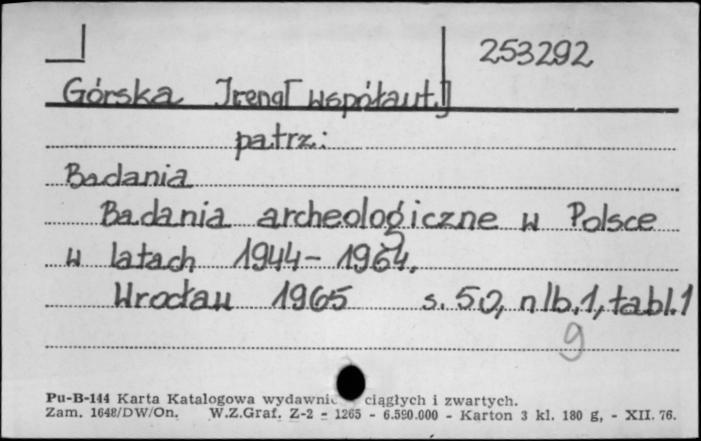 253292
Górska Irena [współaut.]
patrz:
Badania
Badania archeologiczne w Polsce
w latach 1944-1964.
Wrocław 1965 s. 50, nlb. 1, tabl. 1
9
Pu-B-144 Karta Katalogowa wydawnic ciągłych i zwartych.
Zam. 1648/DW/On. W.Z.Graf. Z-2 - 1265 - 6.590.000 - Karton 3 kl. 180 g, - XII. 76.